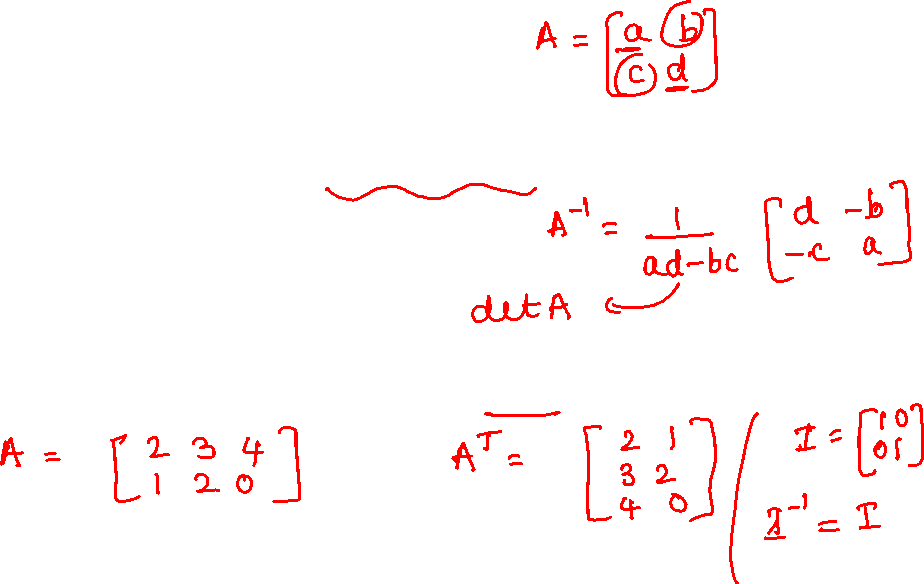 A = [a b
c d]
A⁻¹ = 1/(ad-bc) [d -b
-c a]
det A
A = [2 3 4
1 2 0]
Aᵀ = [2 1
3 2
4 0]
I = [1 0
0 1]
I⁻¹ = I